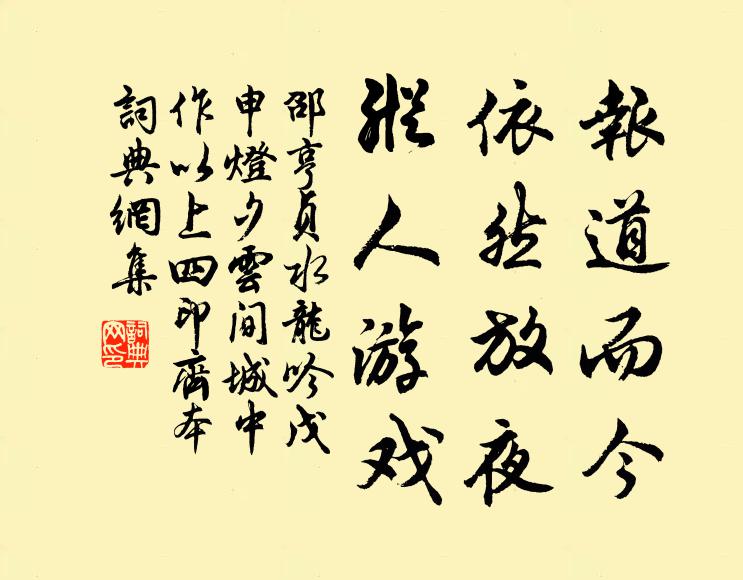 報道而今
依然放夜
縱人游戏
邵亨貞水龍吟戊
申燈夕雲间城中
作以上四印齋本
詞典網集
詞典
网印